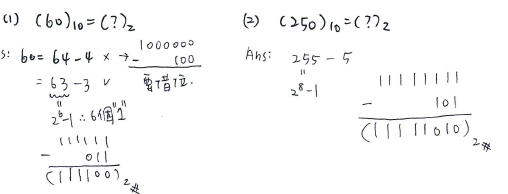 (1) (60)10 = (?)2
s: 60 = 64 - 4 × → 1000000
- 100
= 63 - 3 ✓
"
2^6 - 1 ∴ 6個"1"
111111
- 011
(111100)2 #
(2) (250)10 = (?)2
Ans: 255 - 5
"
2^8 - 1
11111111
- 101
(11111010)2 #